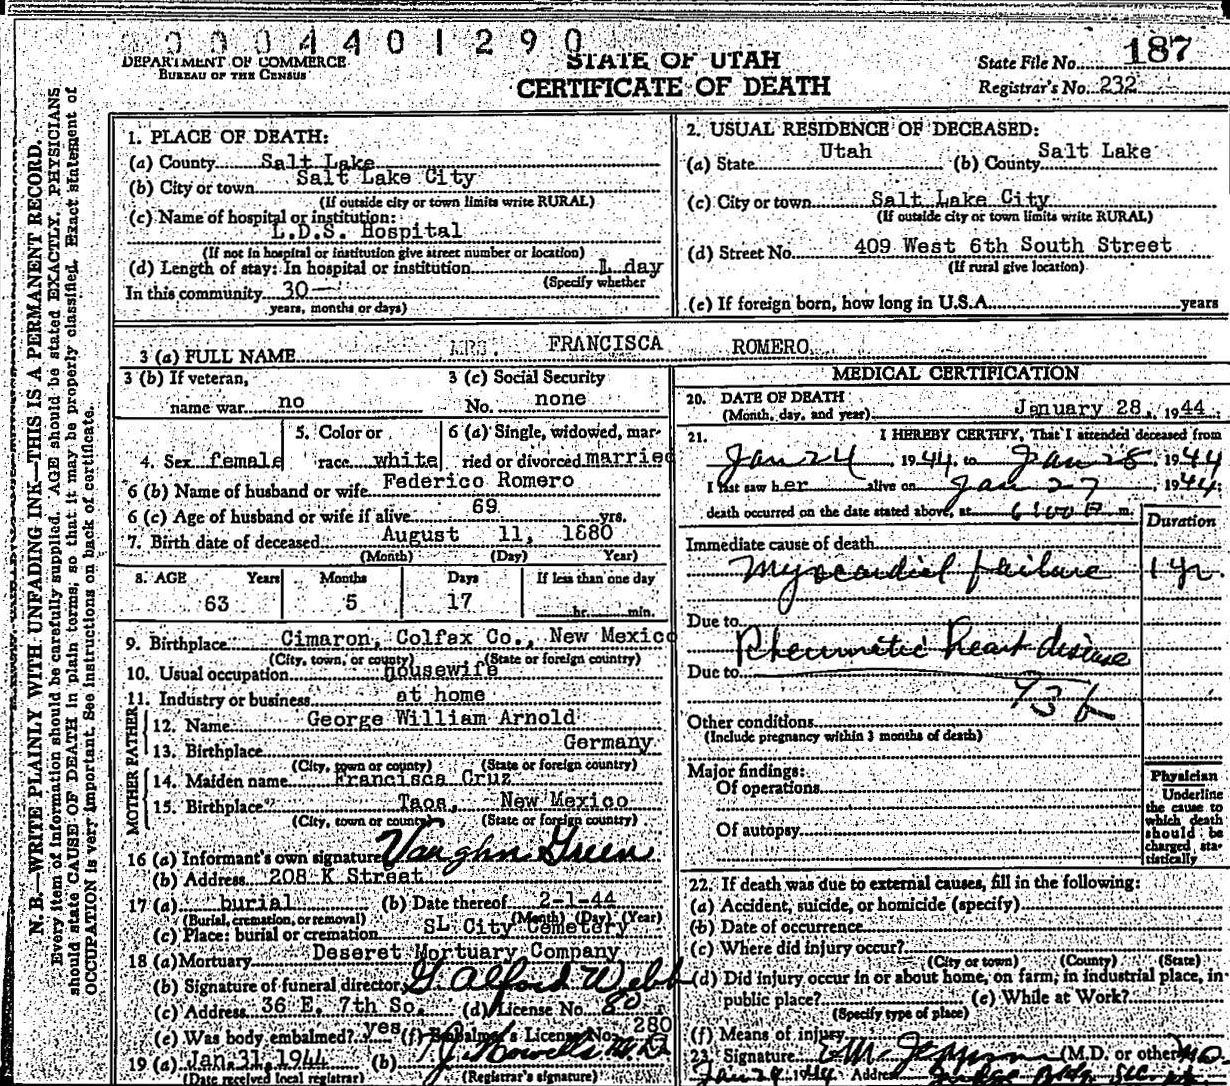 0 0 0 4 4 0 1 2 9 0
DEPARTMENT OF COMMERCE
BUREAU OF THE CENSUS
STATE OF UTAH
CERTIFICATE OF DEATH
State File No. 187
Registrar's No. 232
N. B.—WRITE PLAINLY WITH UNFADING INK—THIS IS A PERMANENT RECORD.
Every item of information should be carefully supplied. AGE should be stated EXACTLY. PHYSICIANS
should state CAUSE OF DEATH in plain terms, so that it may be properly classified. Exact statement of
OCCUPATION is very important. See instructions on back of certificate.
1. PLACE OF DEATH:
(a) County Salt Lake
(b) City or town Salt Lake City
(If outside city or town limits write RURAL)
(c) Name of hospital or institution:
L.D.S. Hospital
(If not in hospital or institution give street number or location)
(d) Length of stay: In hospital or institution 1 day
(Specify whether
In this community 30—
years, months or days)
2. USUAL RESIDENCE OF DECEASED:
(a) State Utah (b) County Salt Lake
(c) City or town Salt Lake City
(If outside city or town limits write RURAL)
(d) Street No. 409 West 6th South Street
(If rural give location)
(e) If foreign born, how long in U.S.A. years
3 (a) FULL NAME MRS. FRANCISCA ROMERO
3 (b) If veteran,
name war no
3 (c) Social Security
No. none
4. Sex female
5. Color or
race white
6 (a) Single, widowed, mar-
ried or divorced married
6 (b) Name of husband or wife Federico Romero
6 (c) Age of husband or wife if alive 69 yrs.
7. Birth date of deceased August 11, 1880
(Month) (Day) Year)
8. AGE Years Months Days If less than one day
63 5 17 hr. min.
9. Birthplace Cimaron, Colfax Co., New Mexico
(City, town, or county) (State or foreign country)
10. Usual occupation housewife
11. Industry or business at home
FATHER
12. Name George William Arnold
13. Birthplace Germany
(City, town or county) (State or foreign country)
MOTHER
14. Maiden name Francisca Cruz
15. Birthplace Taos, New Mexico
(City, town or county) (State or foreign country)
16 (a) Informant's own signature Vaughn Green
(b) Address 208 K Street
17 (a) burial (b) Date thereof 2-1-44
(Burial, cremation, or removal) (Month) (Day) (Year)
(c) Place: burial or cremation SL City Cemetery
18 (a) Mortuary Deseret Mortuary Company
(b) Signature of funeral director G. Alford Webb
(c) Address 36 E. 7th So. (d) License No. 80
(e) Was body embalmed? yes (f) Embalmer's License No. 280
19 (a) Jan. 31, 1944 (b) M.D.
(Date received local registrar) (Registrar's signature)
MEDICAL CERTIFICATION
20. DATE OF DEATH
(Month, day, and year) January 28, 1944
21. I HEREBY CERTIFY, That I attended deceased from
Jan 24, 1944, to Jan 28, 1944
I last saw her alive on Jan 27 1944;
death occurred on the date stated above, at m.
Duration
Immediate cause of death
Myocardial failure 1 yr.
Due to
Rheumatic heart disease
Due to
93 b
Other conditions
(Include pregnancy within 3 months of death)
Major findings:
Of operations
Of autopsy
Physician
Underline
the cause to
which death
should be
charged sta-
tistically
22. If death was due to external causes, fill in the following:
(a) Accident, suicide, or homicide (specify)
(b) Date of occurrence
(c) Where did injury occur?
(City or town) (County) (State)
(d) Did injury occur in or about home, on farm, in industrial place, in
public place? (e) While at Work?
(Specify type of place)
(f) Means of injury
23. Signature (M.D. or other) MD
1944 Address